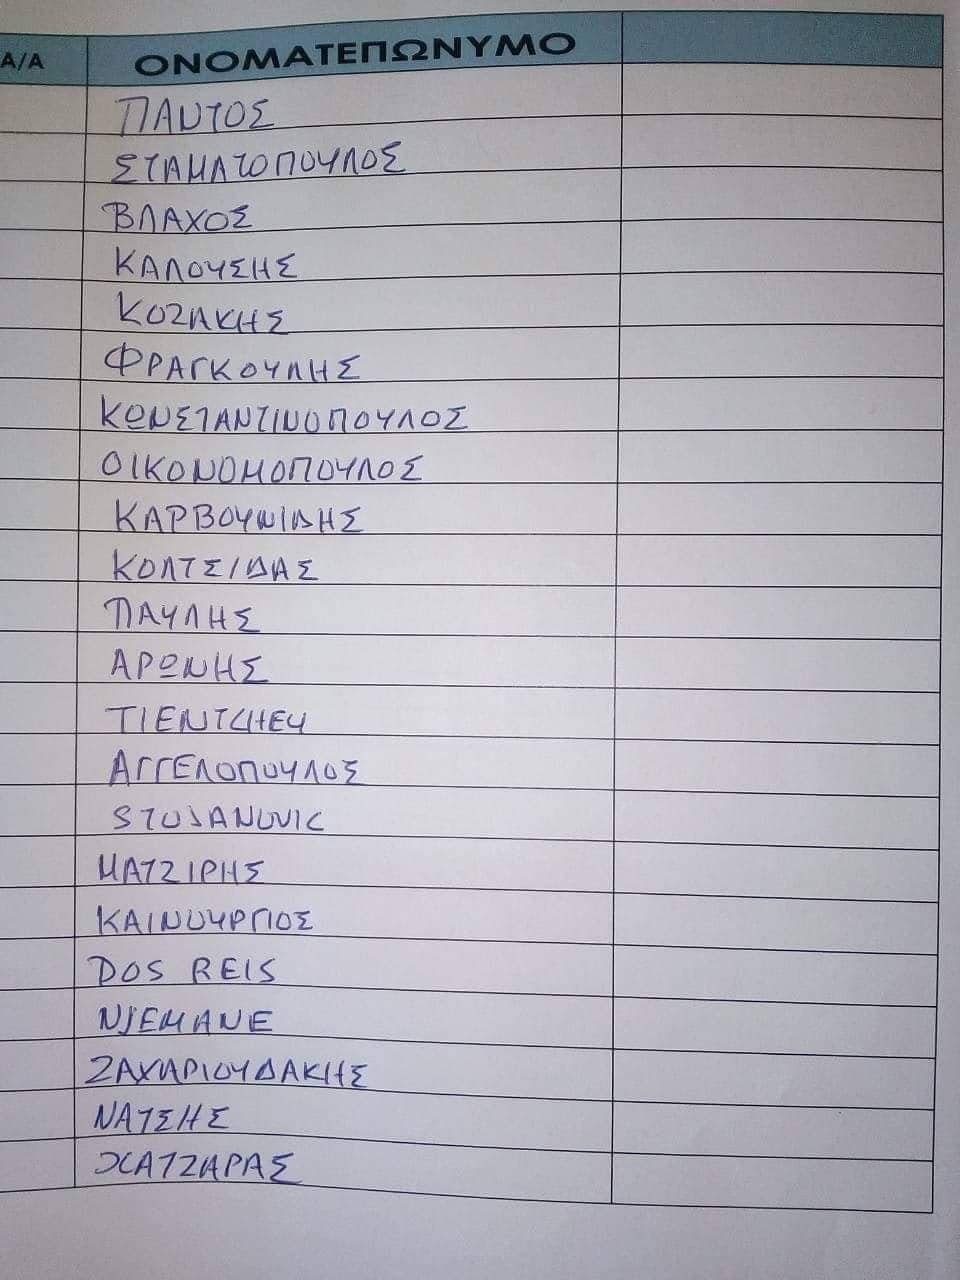 Α/Α ΟΝΟΜΑΤΕΠΩΝΥΜΟ
ΠΑΝΤΟΣ
ΣΤΑΜΑΤΟΠΟΥΛΟΣ
ΒΛΑΧΟΣ
ΚΑΛΟΥΣΗΣ
ΚΟΖΑΚΗΣ
ΦΡΑΓΚΟΥΛΗΣ
ΚΩΝΣΤΑΝΤΙΝΟΠΟΥΛΟΣ
ΟΙΚΟΝΟΜΟΠΟΥΛΟΣ
ΚΑΡΒΟΥΝΙΔΗΣ
ΚΟΛΤΣΙΔΑΣ
ΠΑΥΛΗΣ
ΑΡΩΝΗΣ
TIENTCHEU
ΑΓΓΕΛΟΠΟΥΛΟΣ
STOJANOVIC
ΜΑΤΖΙΡΗΣ
ΚΑΙΝΟΥΡΓΙΟΣ
DOS REIS
NJEMANE
ΖΑΧΑΡΙΟΥΔΑΚΗΣ
ΝΑΤΣΗΣ
ΧΑΤΖΑΡΑΣ